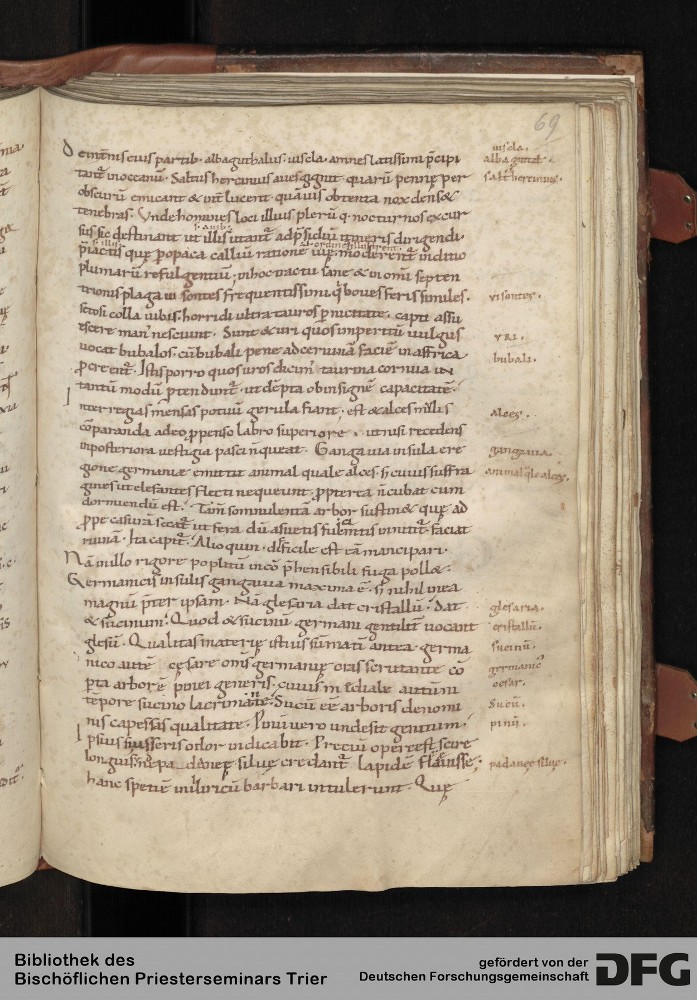 69
De intimis eius partib· alba guthalus· uiscla· amnes latissimi p̄cipi
tant᷑ in oceanū· Saltus hercinius aues gignit quarū pennę per
obscurū emicant & int̄ lucent· quāuis obtenta nox dens&
tenebras· Vnde homines loci illius plerū q· nocturnos excur
sus sic destinant ut illis utant᷑ ad p̄sidiū itineris dirigendi·
p̄iactis quę p opaca calliū rationē uię moderent᷑ inditio
plumarū refulgentiū· in hoc tractu sane & in omi septen
trionis plaga uisontes frequentissimi q̄ boues feris similes·
setosi colla iubis· horridi ultra tauros pnicitate· capti assu
escere manu nesciunt· Sunt & uri quos imperitū uulgus
uocat bubalos· cū bubali pene ad ceruinā faciē in affrica
pcreent᷑· Istis porro quos uros dicim᷑ taurina cornua in
tantū modū ptendunt᷑· ut dēpta ob insignē capacitatē·
Inter regias mensas potuū gerula fiant· est & alces mulis
cōparanda adeo ppenso labro superiore· ut nisi recedens
in posteriora uestigia pasci nqueat· Gangauia insula e re
gione germaniae emittit animal quale alces· s; cuius suffra
gines ut elefantes flecti nequeunt· ppterea n cubat cum
dormiendū est· Tam̄ somnulentā arbor sustin& quę ad
ppe casurā secat᷑ ut fera dū assuetis fulmtis innitit᷑ faciat
ruinā· Ita capit᷑· Alio quin difficile est eā mancipari·
Nā in illo rigore poplitū inco p̄hensibili fuga poll&·
Germanicis insulis gangauia maxima ē· s; nihil in ea
magnū p̄ter ipsam· Nā glesaria dat cristallū· dat
& sucinum· Quod & sucinū germani gentilit᷑ uocant
glesū· Qualitas materię istius sūmati antea germa
nico autē cesare om̄s germanię oras scrutante cō
pta arbor ē pinei generis· cuius in & diale autūni
tēpore sucino lacrimat᷑· Sucū eē arboris denomi
nis capessas qualitate· Pinū uero unde sit gentum·
Ipsius si usseris odor indicabit· Preciū opere est scire
longius ne padaneę siluę credant᷑ lapidē flauisse·
hanc speciē in illiricū barbari intulerunt· Quę
uiscla·
alba gutal·
salt᷑ hercinius·
uisontes·
VRI·
bubali·
alces·
gangauia
animal q̄le alces·
glesaria·
cristallū·
sucinū·
germanic᷑
cesar·
Sucū·
pinū·
padaneę siluę·
Bibliothek des
Bischöflichen Priesterseminars Trier
gefördert von der
Deutschen Forschungsgemeinschaft
DFG